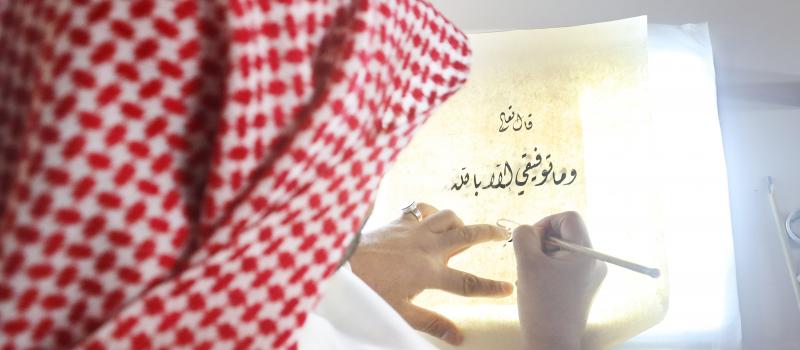 قال تعالى
وما توفيقي الا بالله